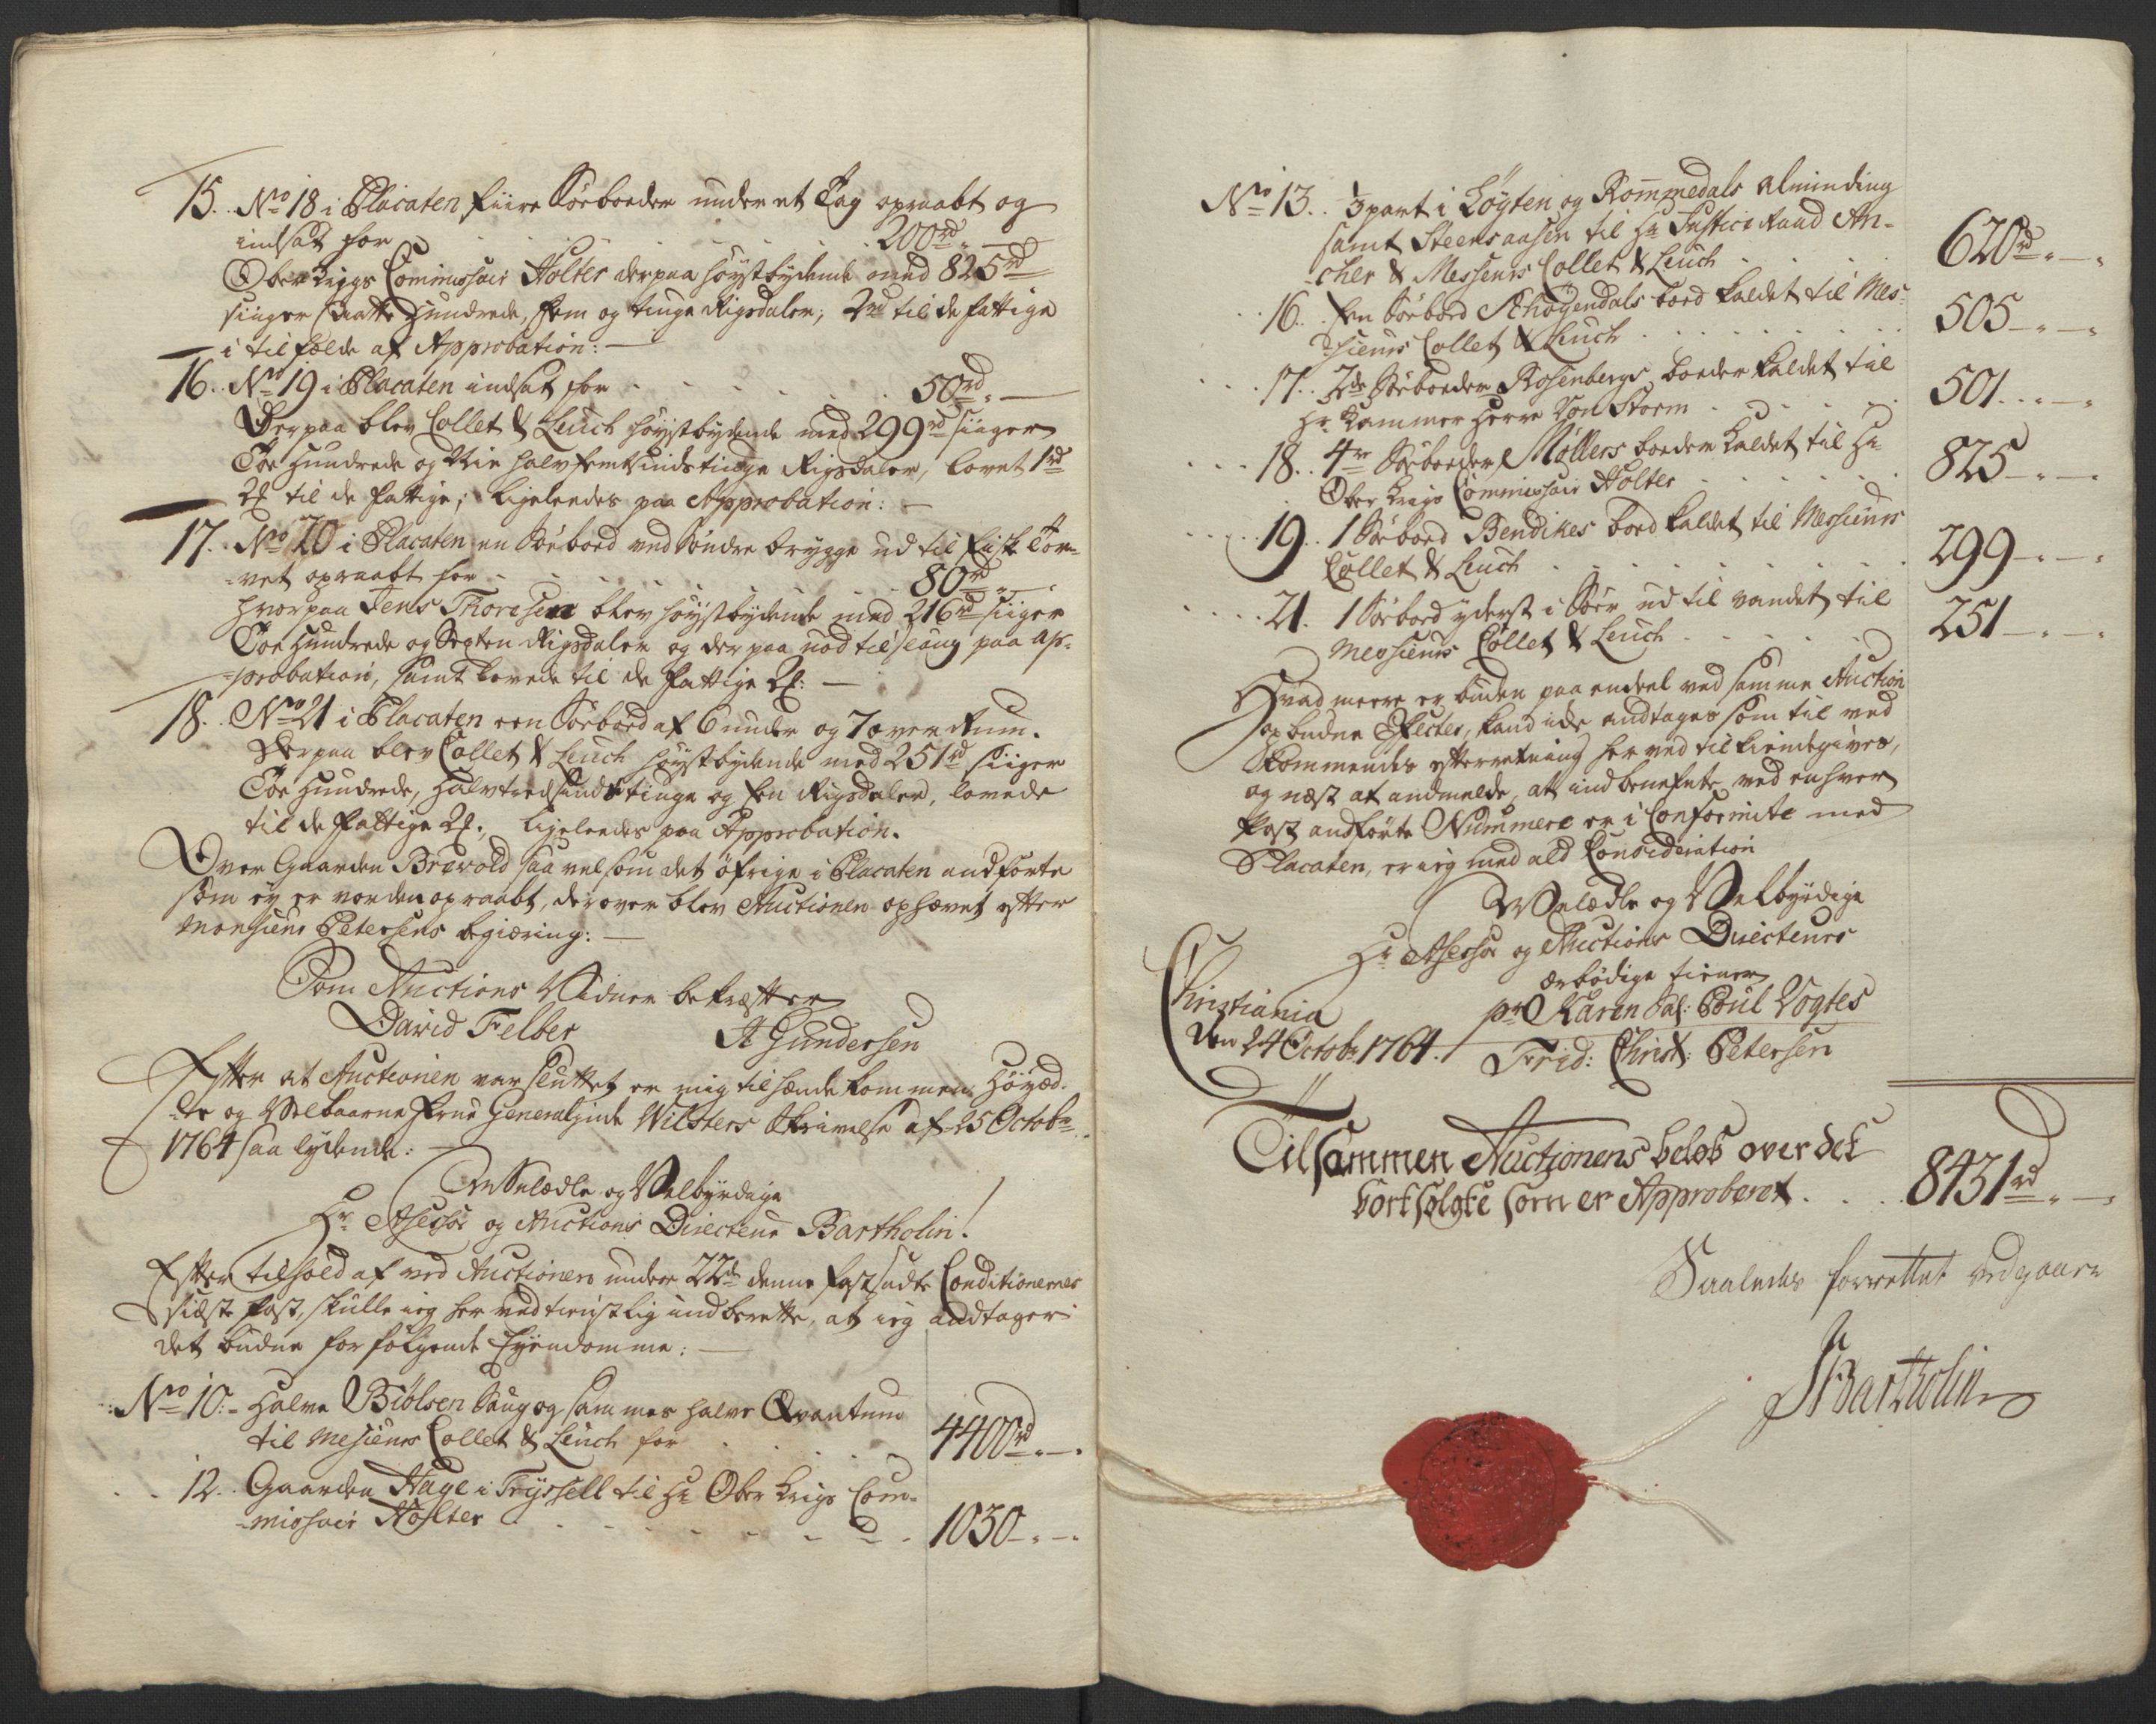 15. No 18 i Placaten fiire Söeboeder under et Tag opraabt og
indsat for . . . . 200rd. —
Ober Krigs Commissair Holter derpaa höystbydende med 825rd
siiger Hundrede, fem og tiuge Rigsdaler; 2rd til de fattige
i tilfælde af Approbation: —
16. No 19 i Placaten indsat for . . . . 50rd. —
Derpaa blev Collet & Leuch höystbydende med 299rd siiger
Toe Hundrede og Nie halvfemtsindstiuge Rigsdaler, lovet 1rd
2 til de fattige; ligeleedes paa Approbation: —
17. No 20 i Placaten en Söeboed ved Söndre brygge ud til Fisk Tor-
-vet opraabt for . . . . 80rd. —
hvorpaa Jens Thoresen blev höystbydende med 216rd siiger
Toe Hundrede og Sexten Rigsdaler og derpaa nød tilslaug paa Ap-
-probation, samt lovede til de fattige 2: —
18. No 21 i Placaten een Söeboed af 6 under og 7 over Rum.
Derpaa blev Collet & Leuch höystbydende med 251rd siiger
Toe Hundrede, halvtredsindstiuge og Een Rigsdaler, lovede
til de fattige 2, ligeleedes paa Approbation.
Over Gaarden Brevold saa vel som det öfrige i Placaten andförte
som ey er vorden opraabt, derover blev Auctionen ophævet efter
Monsieur Petersens begiæring: —
Som Auctions Vidner bekræfter
David Felber A Gundersen
Efter at Auctionen var sluttet er mig tilhænde kommen Höyæd-
-le og Velbaarne Frue Generalinde Wilsters Skrivelse af 25 Octobr
1764 saa lydende: —
Velædle og Velbyrdige
Hr Assessor og Auctions Directeur Bartholin!
Efter tilhold af ved Auctionen under 22de denne fastsadte Conditionernes
siste Post, skulle ieg her ved tienstlig indberette, at ieg andtager
det budne for fölgende Eyendomme: —
No 10. Halve Biölsen Saug og sammes halve Qvantum
til Messieurs Collet & Leuch for . . . . 4400rd. —
12. Gaarden Hage i Tryssell til Hr Ober Krigs Com-
-missair Holter . . . . 1030 . —
No 13. ⅓ part i Löyten og Rommedals alminding
samt Steensaasen til Hr Justice Raad An-
-cher & Messieurs Collet & Leuch . . 620rd. —
16. Een Söeboed Schöyendals boed kaldet til Mes-
-sieurs Collet & Leuch . . . . 505 . —
17. 2de Söeboeder Rosenbergs boeder kaldet til
Hr Kammer Herre Von Storm . . . . 501 . —
18. 4re Söeboeder Möllers boeder kaldet til Hr
Ober Krigs Commissair Holter . . . . 825 . —
19. 1 Söeboed Bendikes boed kaldet til Messieurs
Collet & Leuch . . . . 299 . —
21. 1 Söeboed yderst i Söer ud til vandet til
Messieurs Collet & Leuch . . . . 251 . —
Hvad meere er buden paa endeel ved samme Auction
opbudne Effecter, kand icke andtages som til ved
kommendes efterretning her ved tilkiendegives,
og næst at andmelde, at indbemelte ved enhver
Post andförte Nummere er i Conformite med
Placaten, er ieg med ald Consideration
Velædle og Velbyrdige
Hr Assessor og Auctions Directeurs
ærbödige tiener
Christiania
den 24 Octobr 1764.
pro Karen Sal: Poul Vogtes
Frid: Christ: Petersen
Tilsammen Auctionens belöb over det
bortsolgte som er Approberet . . . 8431rd. —
Saaledes forrettet vedgaar
Bartholin